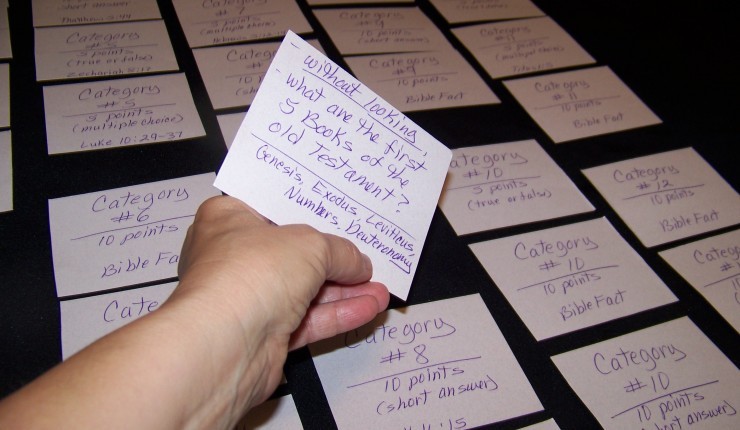 short answer
Matthew 5:44
Category
#5
5 points
(true or false)
Zechariah
Category
#5
5 points
(multiple choice)
Luke 10:29-37
Category
#6
10 points
Bible Fa
Cate
Category
# 7
5 points
(multiple choice)
Categ
10 p
- without looking,
- what are the first
5 Books of the
old Testament?
Genesis, Exodus, Leviticus,
Numbers, Deuteronomy
Category
# 8
10 points
(short answer)
:15
10 points
(short answer)
Category
#9
10 points
Bible Fact
ategory
#10
5 points
(true or false)
Category
# 10
10 points
Bible Fact
Category
#10
10 points
short answer)
Category
5 points
(multiple choice)
Category
# 11
10 points
Bible Fact
Category
# 12
10 points
Bible Fact
Catego